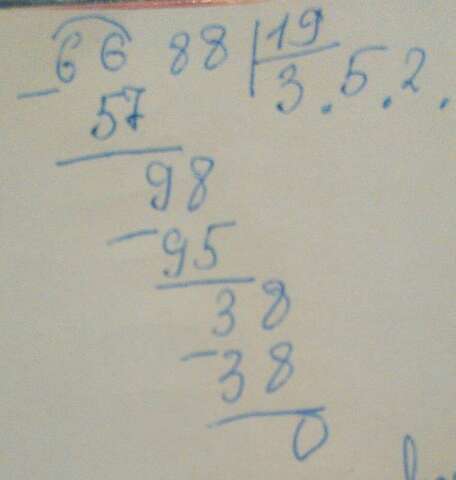 66 88 | 19
- 57 3.5.2.
98
- 95
38
- 38
0